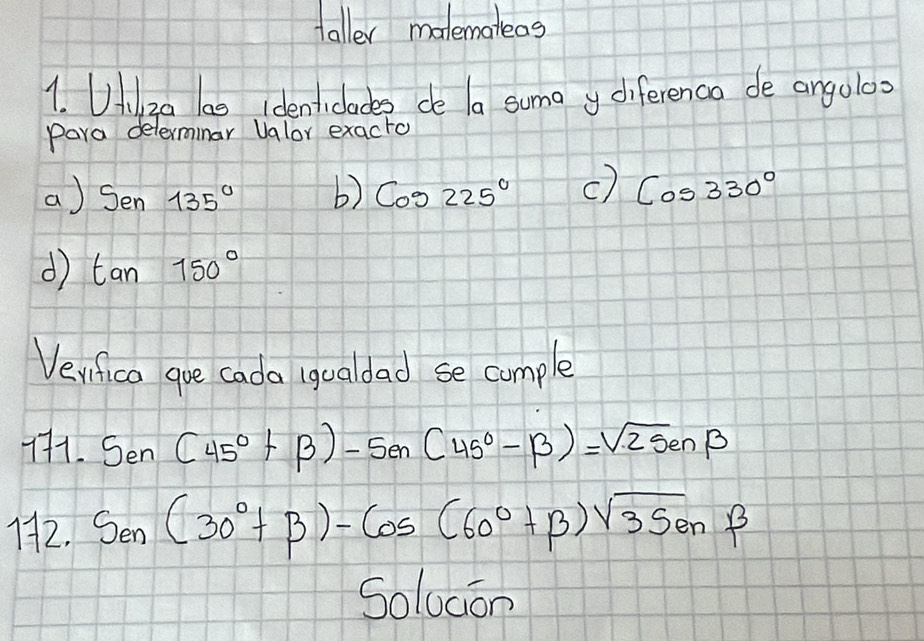 taller matematicas
1. Utiliza las identidades de la suma y diferencia de angulos
para determinar Valor exacto
a) Sen 135° b) Cos 225° c) Cos 330°
d) tan 150°
Verifica que cada igualdad se cumple
171. Sen (45° + β) - Sen (45° - β) = √2 Sen β
172. Sen (30° + β) - Cos (60° + β) √3 Sen β
Solución